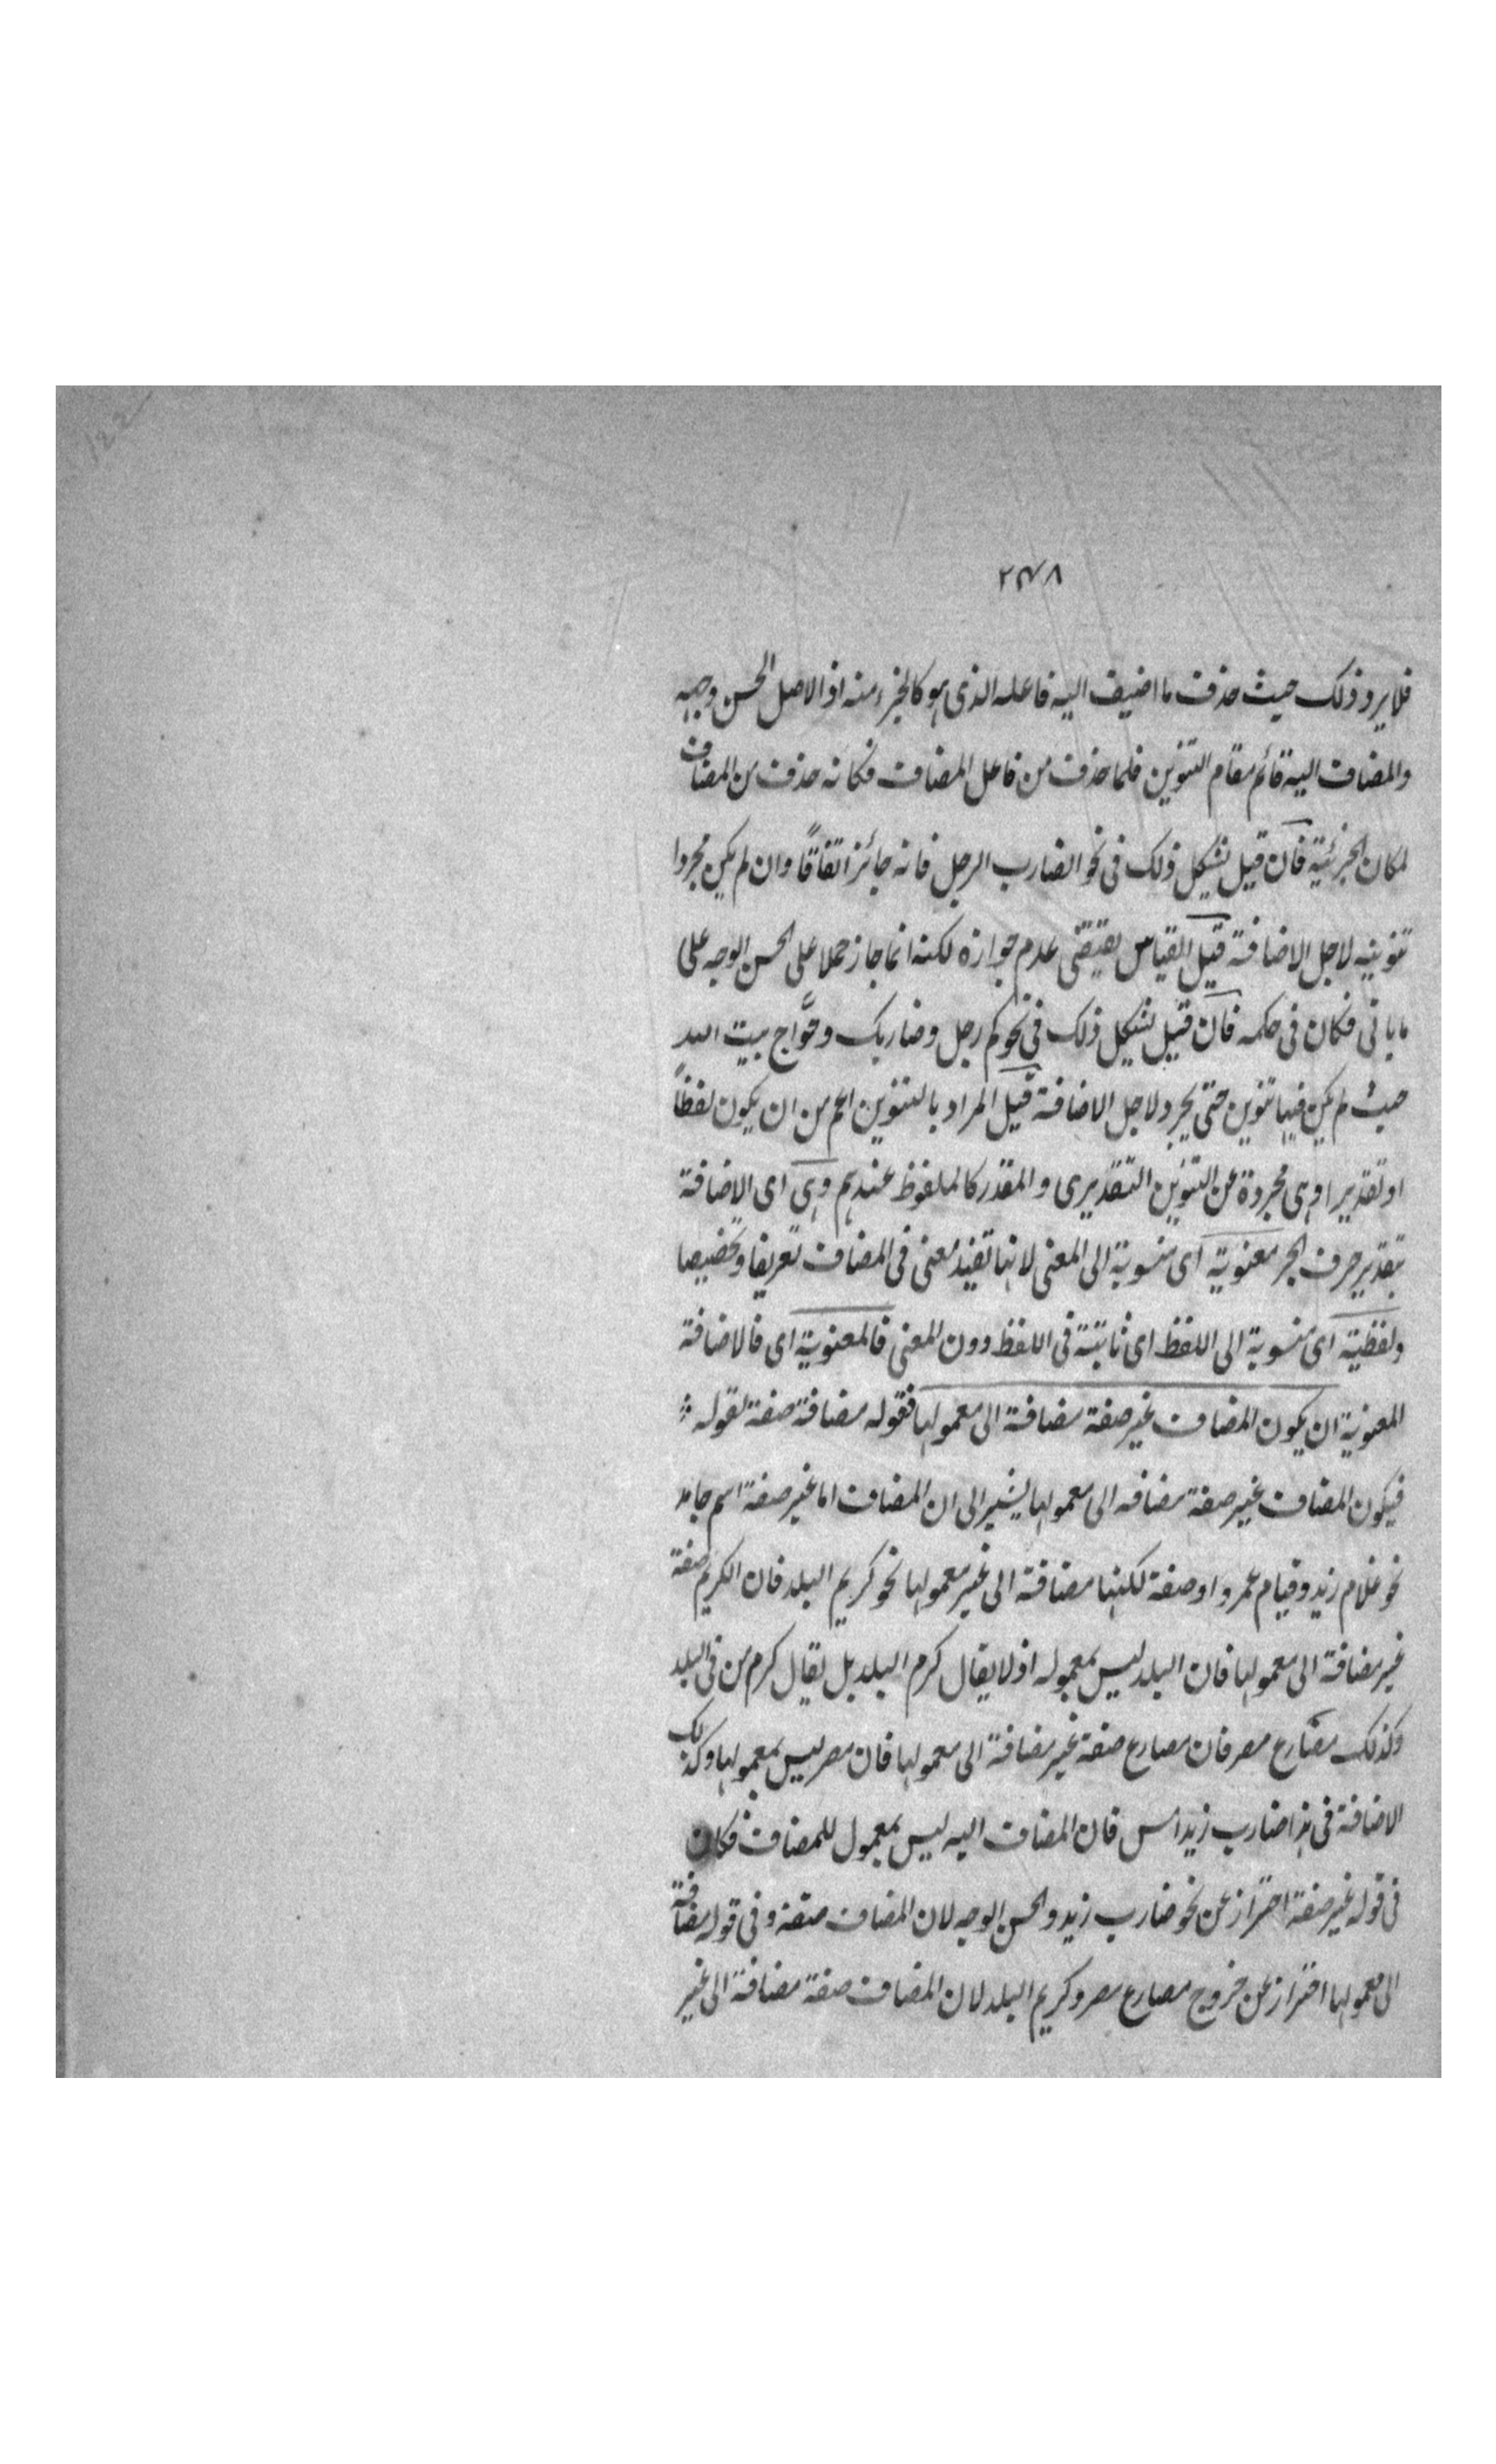 ۲۴۸
فلا يرد ذلك حيث حذف ما اضيف اليه فاعله الذى هو كالجزء منه اذ الاصل الحسن وجهه
والمضاف اليه قائم مقام التنوين فلما حذف من فاعل المضاف فكانه حذف من المضاف
لمكان الجزئية فان قيل يشكل ذلك فى نحو الضارب الرجل فانه جائز اتفاقًا وان لم يكن مجردا
تنوينه لاجل الاضافة قيل القياس يقتضى عدم جوازه لكنه انما جاز حملا على الحسن الوجه على
ما ياتى فكان فى حكمه فان قيل يشكل ذلك فى نحو كم رجل وضاربك وحوَّاج بيت الله
حيث لم يكن فيها تنوين حتى يجرد لاجل الاضافة قيل المراد بالتنوين اعم من ان يكون لفظاً
او تقديرا وهى مجردة عن التنوين التقديرى والمقدر كالملفوظ عندهم وهى اى الاضافة
بتقدير حرف الجر معنوية اى منسوبة الى المعنى لانها تفيد معنى فى المضاف تعريفا وتخصيصا
ولفظية اى منسوبة الى اللفظ اى ثابتة فى اللفظ دون المعنى فالمعنوية اى فالاضافة
المعنوية ان يكون المضاف غير صفة مضافة الى معمولها فقوله مضافة صفة لقوله
فيكون المضاف غير صفة مضافة الى معمولها يشير الى ان المضاف اما غير صفة اسم جامد
نحو غلام زيد وقيام عمرو او صفة لكنها مضافة الى غير معمولها نحو كريم البلد فان الكريم صفة
غير مضافة الى معمولها فان البلد ليس بمعموله اذ لا يقال كرم البلد بل يقال كرم من فى البلد
وكذلك مصارع مصر فان مصارع صفة غير مضافة الى معمولها فان مصر ليس بمعمولها وكذلك
الاضافة فى هذا ضارب زيد امس فان المضاف اليه ليس بمعمول للمضاف فكان
فى قوله غير صفة احتراز عن نحو ضارب زيد والحسن الوجه لان المضاف صفة وفى قوله مضافة
الى معمولها احتراز عن خروج مصارع مصر وكريم البلد لان المضاف صفة مضافة الى غير